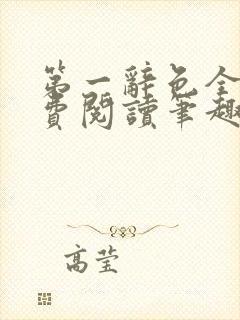 第一辭色全
費閱讀筆趣
高莹